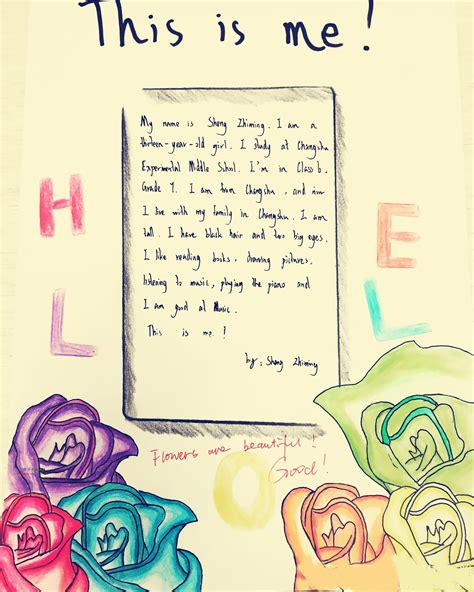 This is me!
My name is Sheng Zhiming. I am a
thirteen-year-old girl. I study at Changsha
Experimental Middle School. I'm in Class 6,
Grade 7. I am from Changsha, and now
I live with my family in Changsha. I am
tall. I have black hair and two big eyes.
I like reading books, drawing pictures,
listening to music, playing the piano and
I am good at Music.
This is me. !
by: Sheng Zhiming
H E
L L
O
Flowers are beautiful!
Good!